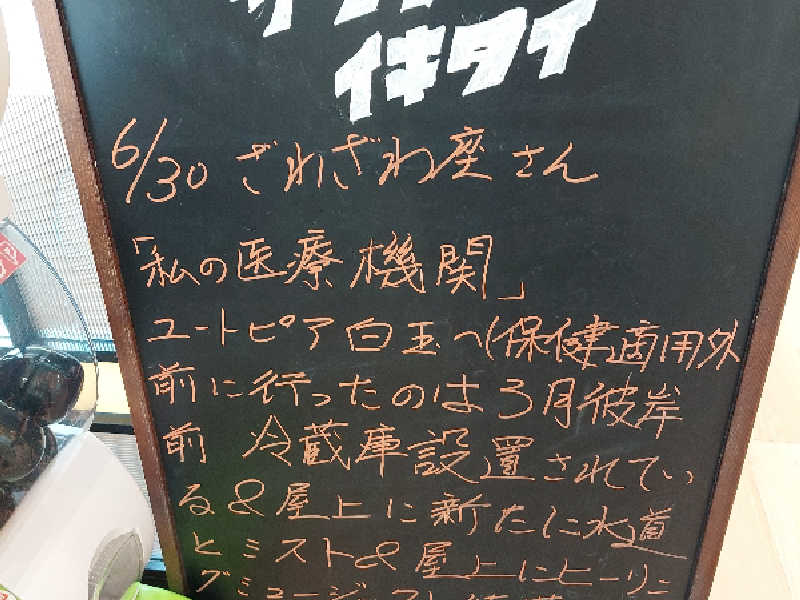 イキタイ
6/30 ざわざわ座さん
「私の医療機関」
ユートピア白玉へ(保健適用外
前に行ったのは3月彼岸
前 冷蔵庫設置されてい
る&屋上に新たに水道
とミスト&屋上にヒーリン
グミュージック